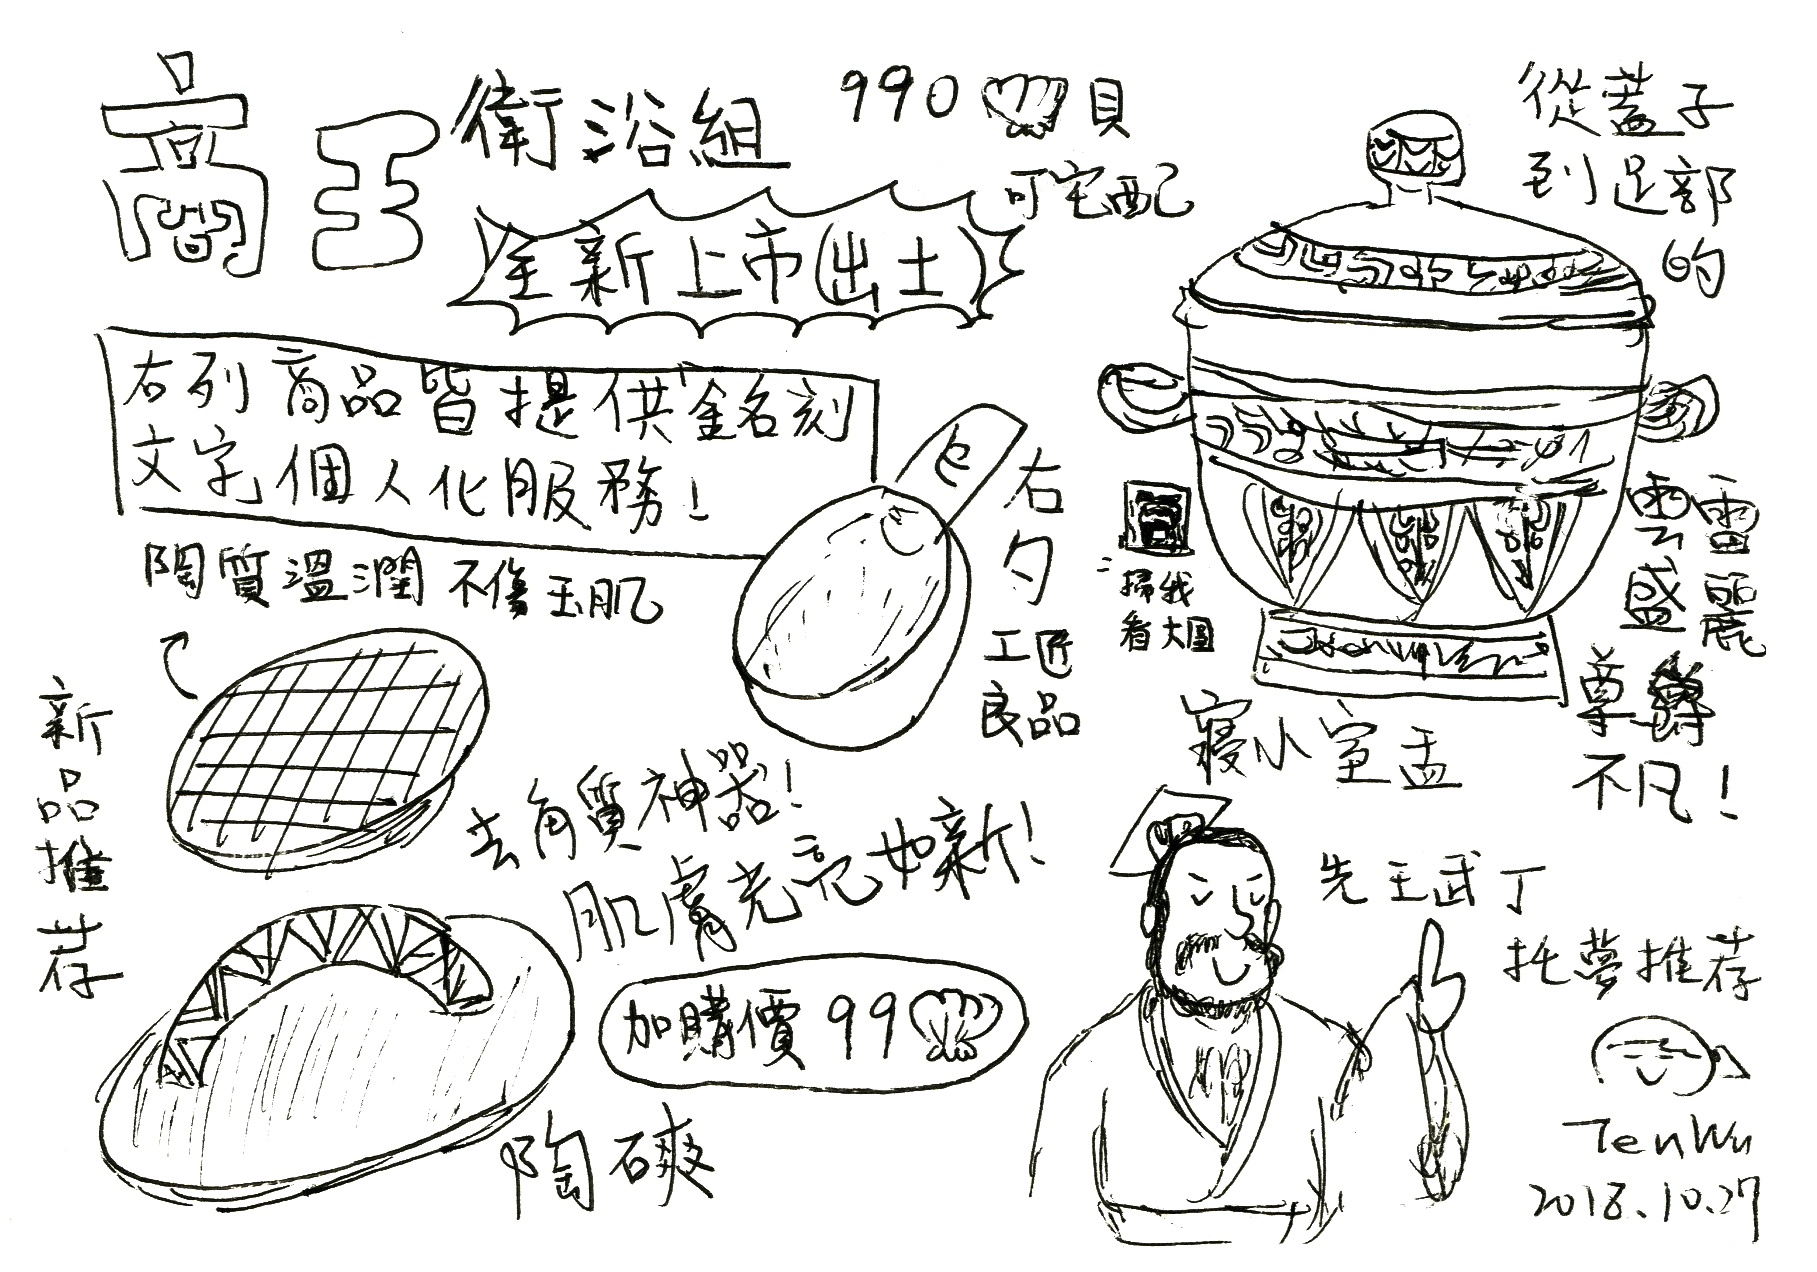 商王衛浴組 990 貝
可宅配
全新上市(出土)
右列商品皆提供"銘刻
文字"個人化服務!
陶質溫潤 不傷玉肌
新品推荐
右勺
工匠
良品
去角質神器!
肌膚光亮如新!
加購價 99
陶磢
從蓋子
到足部
的
雲雷
盛麗
尊爵
不凡!
掃我
看大圖
寢小室盂
先王武丁
托夢推荐
TenWu
2018.10.27